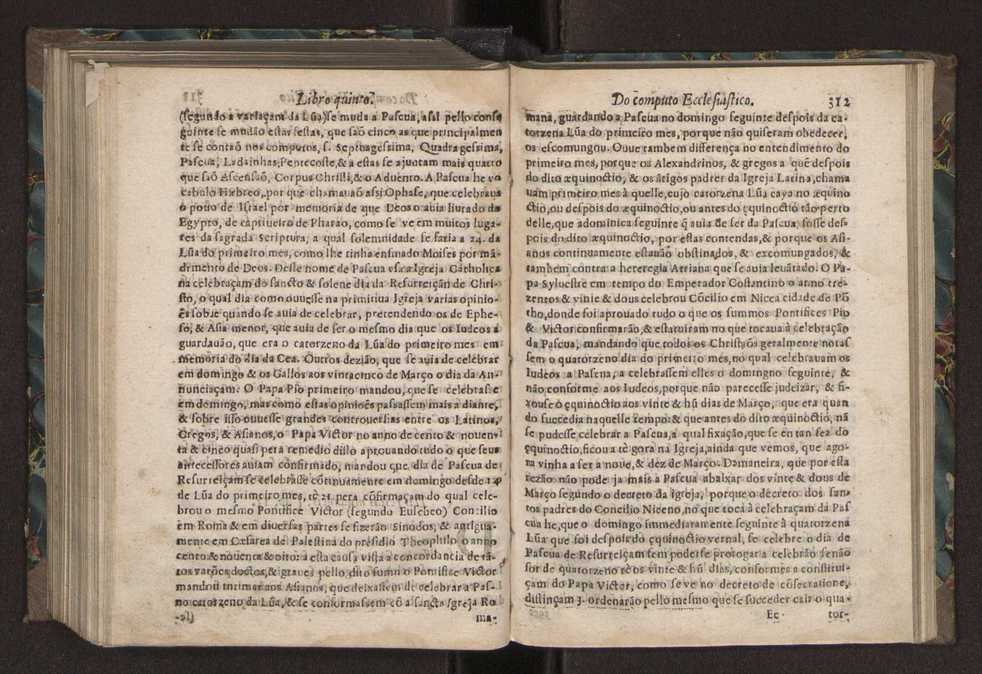 Libro quinto.
(segundo a variaçam da Lũa) se muda a Pascua, assi pello conse
guinte se mudão estas festas, que saõ cinco as que principalmen
te se contão nos computos, s. Septuagessima, Quadragessima,
Pascua, Ladainhas, Pentecoste, & a estas se ajuntam mais quatro
que saõ Ascensaõ, Corpus Christi, & o Aduento. A Pascua he vo
cabolo Hebreo, por que chamauaõ assi Ophase, que celebraua
o pouo de Israel por memoria de que Deos o auia liurado da
Egypto, de captiueiro de Pharao, como se ve em muitos luga-
res da sagrada Scriptura, a qual solemnidade se fazia a 24. da
Lũa do primeiro mes, como lhe tinha ensinado Moises por mã-
dimento de Deos. Deste nome de Pascua vsa a Igreja Catholica
na celebraçam do sancto & solene dia da Resurreiçãn de Chri-
sto, o qual dia como ouuesse na primitiua Igreja varias opinio-
ẽs sobre quando se auia de celebrar, pretendendo os de Ephe-
so, & Asia menor, que auia de ser o mesmo dia que os Iudeos a
guardauão, que era o catorzeno da Lũa do primeiro mes em
memoria do dia da Cea. Outros dezião, que se auia de celebrar
em domingo & os Gallos aos vintacinco de Março o dia da An-
nunciaçam: O Papa Pio primeiro mandou, que se celebrasse
em domingo, mas como estas opinioẽs passassem mais a diante,
& sobre isso ouuesse grandes controuersias entre os Latinos,
Gregos, & Asianos, o Papa Victor no anno de cento & nouen-
ta & cinco quasi pera remedio disso aprouando tudo o que seus
antecessores auiam confirmado, mandou que dia de Pascua de
Resurreiçam se celebrasse continuamente em domingo desde 14
de Lũa do primeiro mes, tẽ 21. pera cõfirmaçam do qual cele-
brou o mesmo Pontifice Victor (segundo Eusebeo) Concilio
em Roma & em diuersas partes se fizerão Sinodos, & antigua-
mente em Cæsarea de Palestina do presidio Theophilo o anno
cento & nouenta & oito: a esta causa vista a concordancia de tã-
tos varoẽs doctos, & graues pello dito sumo Pontifise Victor
mandou intimar aos Asianos, que deixassem de celebrar a Pas-
no catorzeno da Lũa, & se conformassem cõ a sancta Igreja Ro
ma-
Do computo Ecclesiastico. 312
mana, guardando a Pascua no domingo seguinte despois da ca-
torzena Lũa do primeiro mes, porque não quiseram obedecer,
os escomungou. Ouue tambem differença no entendimento do
primeiro mes, porque os Alexandrinos, & gregos a quẽ despois
do dito æquinoctio, & os ãtigos padres da Igreja Latina, chama
uam primeiro mes à quelle, cujo catorzeno Lũa caya no æquino
ctio, ou despois do æquinoctio, ou antes do ęquinoctio tão perto
delle, que a dominica seguinte q̃ auia de ser da Pascua, fosse des-
pois do dito æquinoctio, por estas contendas, & porque os Asi-
anos continuamente estauão obstinados, & excomungados, &
tambem contra a heteregia Arriana que se auia leuãtado. O Pa-
pa Syluestre em tempo do Emperador Costantino o anno tre-
zentos & vinte & dous celebrou Cõcilio em Nicea cidade de Põ
tho, donde foi aprouado tudo o que os summos Pontifices Pio
& Victor confirmarão, & estatuiram no que tocaua à celebração
da Pascua, mandando que todos os Christhyõs geralmente notas
sem o quatorzeno dia do primeiro mes, no qual celebrauam os
Iudeos a Pascua, a celebrassem elles o domingno seguinte, &
não conforme aos Iudeos, porque não parecesse judeizar, & fi-
xouse o ęquinoctio aos vinte & hũ dias de Março, que era quan
do succedia naquelle tempo: & que antes do dito æquinoctio, nã
se pudesse celebrar a Pascua, a qual fixação, que se en tan fez do
ęquinoctio, ficou a tè gora na Igreja, ainda que vemos, que ago-
ra vinha a ser a noue, & dez de Março. Damaneira, que por esta
rezão não pode ja mais a Pascua abaixar dos vinte & dous de
Março segundo o decreto da Igreja, porque o decreto dos san-
tos padres do Concilio Niceno, no que toca à celebraçam da Pas
cua he, que o domingo immediatamente seguinte à quatorzena
Lũa que foi despois do ęquinoctio vernal, se celebre o dia de
Pascua de Resurreiçam sem poderse prologar a celebrão senão
for de quatorzeno tè os vinte & hũ dias, conforme a constitui-
çam do Papa Victor, como se ve no decreto de cõsecratione,
distinçam 3. ordenarão pello mesmo que se succeder cair o qua-
Ee tor-